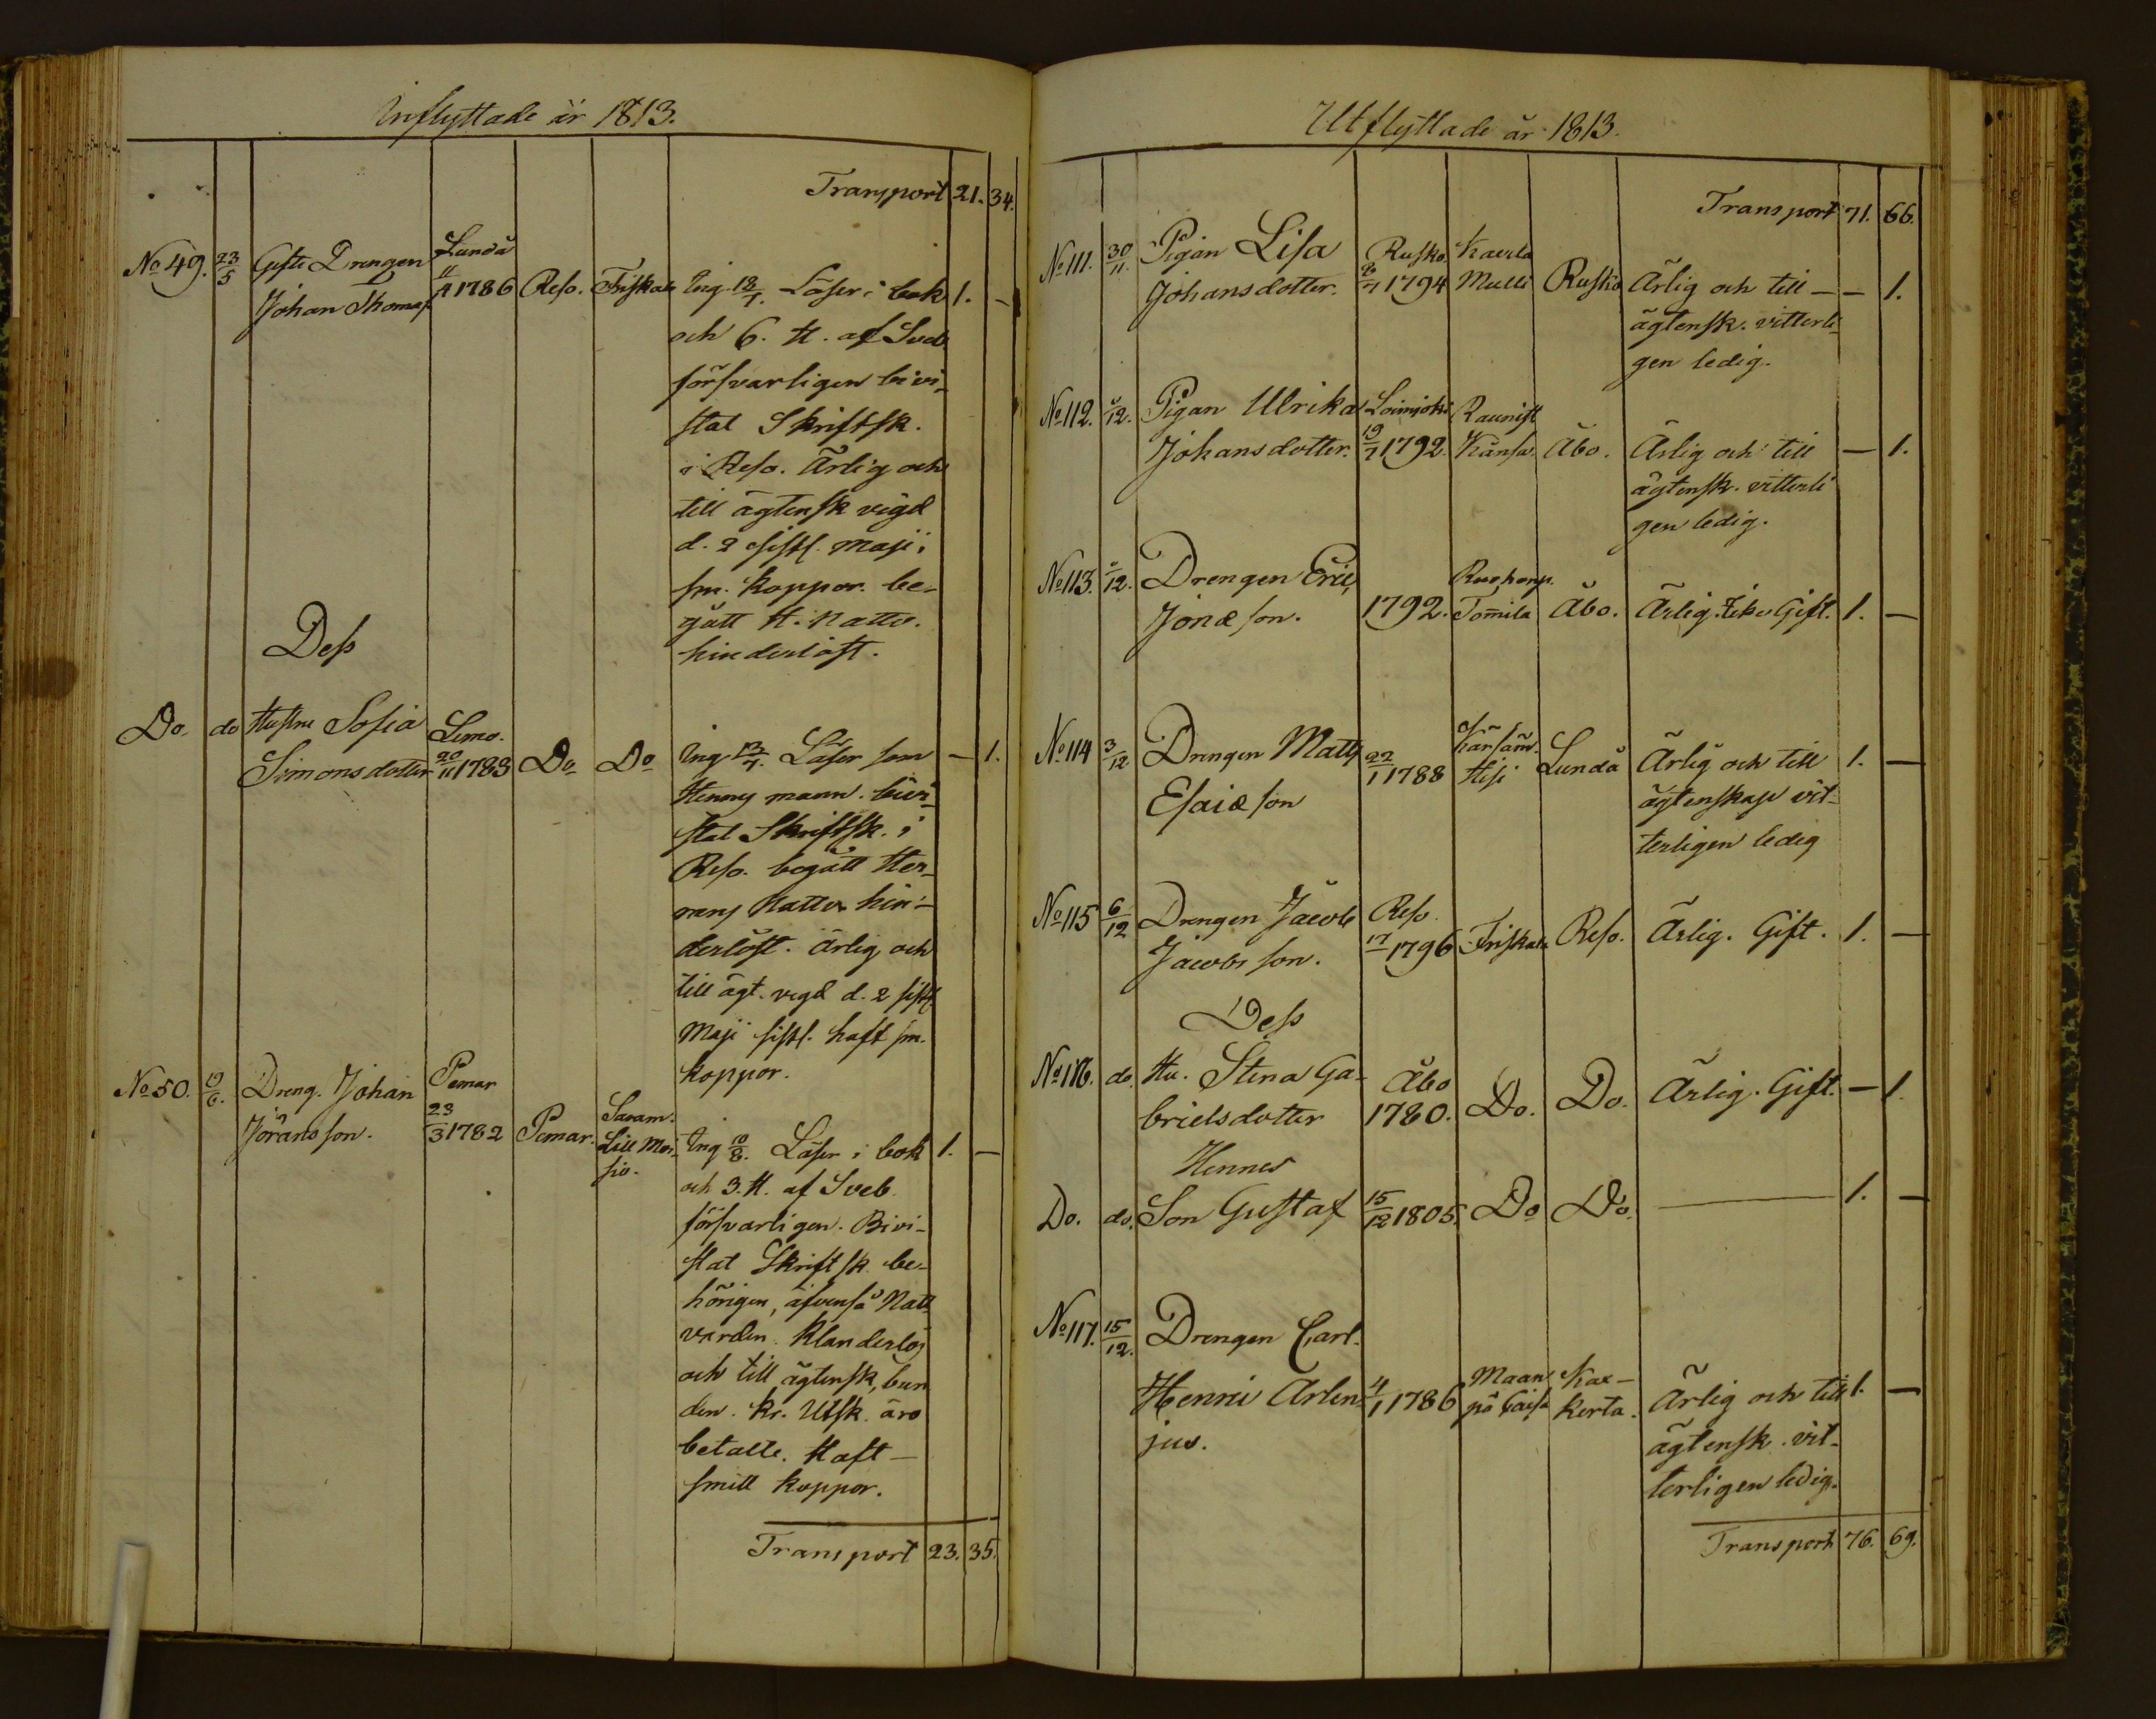 Inflyttade år 1813.
Transport 21. 34.
No 49. 23/5 Gifte Drengen Lundå
Johan Thomas 11/4 1786 Reso. Friskala Ing. 18/7. Läser i bok 1. —
och 6. H. af Sveb.
försvarligen bivi-
stat Skriftsk.
i Reso. Ärlig och
till ägtensk vigd
d. 2 sistl. Maji.
sm. koppor. be-
gått H. Nattv.
hinderlöst.
Dess
Do. do Hustru Sofia Lemo.
Simonsdotter 20/11 1783 Do Do Ing. 13/7. Läser som — 1.
Hennes mann. bivi-
stat Skriftsk. i
Reso. begått Her-
rans Nattv. hin-
derlöst. Ärlig och
till ägt. vigd d. 2 sistl.
Maji sistl. haft sm.
koppor.
No 50. 19/6. Dreng. Johan Pemar
Jöransson. 23/3 1782 Pemar. Savam. Lill Moi-
sio. Ing 10/8. Läser i bok 1. —
och 3. H. af Sveb.
försvarligen. Bivi-
stat Skriftsk. be-
hörigen, äfvenså Natt
varden. Klanderlös
och till ägtensk, bun
den. Kr. Utsk. äro
betalte. Haft —
smitt koppor.
Transport 23. 35.
Utflyttade år 1813.
Transport 71. 66.
No 111. 30/11. Pigan Lisa Rusko. Kaerla
Johansdotter. 1794 Mulli Rusko Ärlig och till — — 1.
ägtensk. vitterli-
gen ledig.
No 112. /12. Pigan Ulrika Loimjoki Raunist
Johansdotter. 19/7 1792. Kånsa. Åbo. Ärlig och till — 1.
ägtensk. vitterli
gen ledig.
No 113. /12. Drengen Eric
Jonæson. 1792. Tomila Åbo. Ärlig. Gift. 1. —
No 114 3/12 Drengen Matts
Esaiæson 22/1 1788 Kärsäm. Hisi Lundå Ärlig och till 1. —
ägtenskap vit-
terligen ledig
No 115 6/12 Drengen Jacob Reso.
Jacobsson. 17/ 1796 Friskala Reso. Ärlig. Gift. 1. —
Dess
No 116. do. Hu. Stina Ga- Åbo
brielsdotter 1780. Do. Do. Ärlig. Gift. — 1
Hennes
Do. do. Son Gustaf 15/12 1805. Do Do. — 1. —
No 117. 15/12. Drengen Carl
Henric Arlen- 4/1 1786 Maan på Caisa Kas-
kerta. Ärlig och till 1. —
jus. ägtensk. vit-
terligen ledig.
Transport 76. 69.